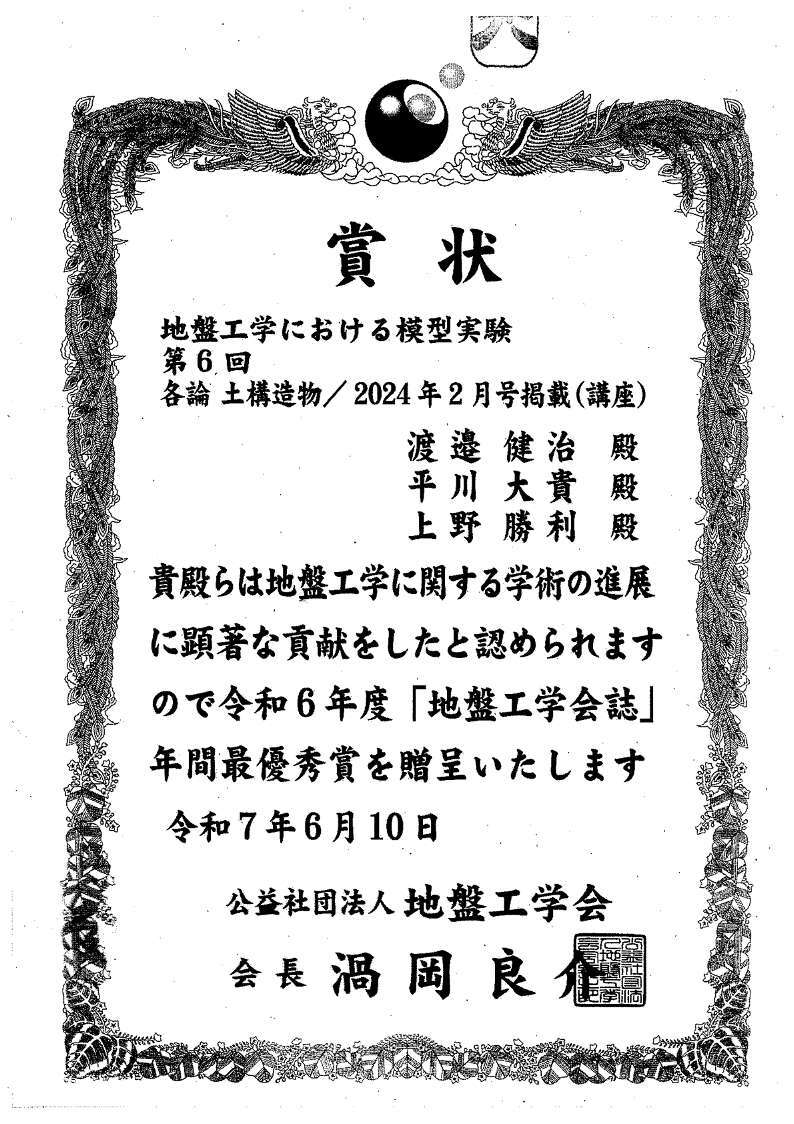 賞状
地盤工学における模型実験
第6回
各論 土構造物／2024年2月号掲載(講座)
渡邉健治 殿
平川大貴 殿
上野勝利 殿
貴殿らは地盤工学に関する学術の進展
に顕著な貢献をしたと認められます
ので令和6年度「地盤工学会誌」
年間最優秀賞を贈呈いたします
令和7年6月10日
公益社団法人 地盤工学会
会長 渦岡良介